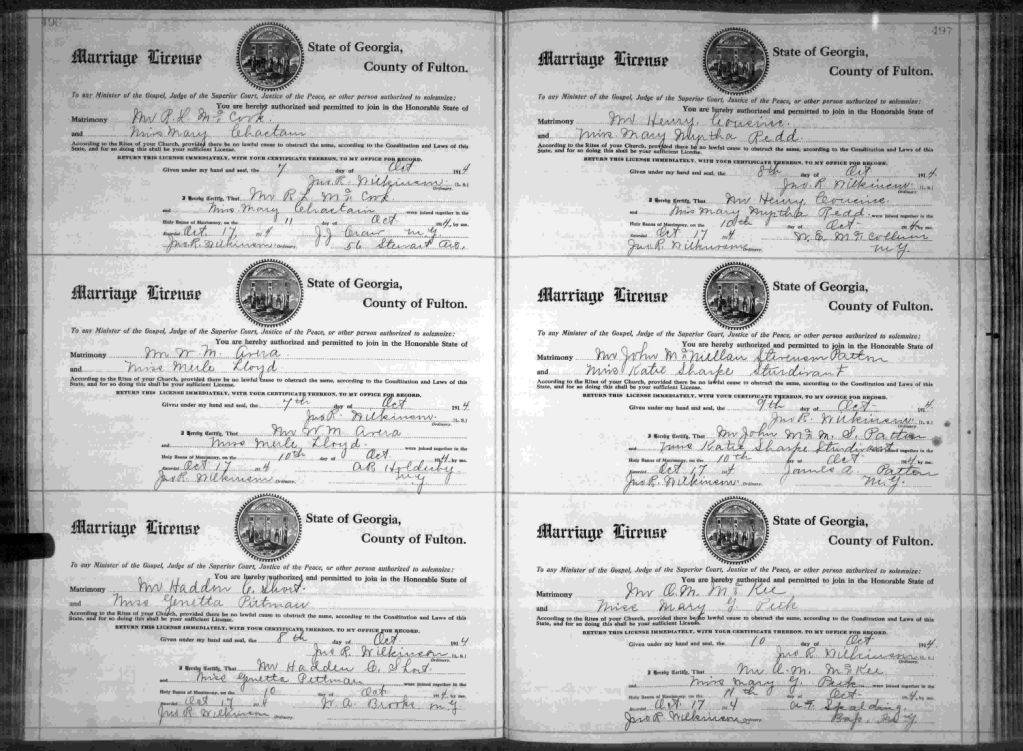 496
Marriage License
State of Georgia,
County of Fulton.
To any Minister of the Gospel, Judge of the Superior Court, Justice of the Peace, or other person authorized to solemnize:
You are hereby authorized and permitted to join in the Honorable State of
Matrimony Mr R. L. McCook
and Miss Mary Chactain
According to the Rites of your Church, provided there be no lawful cause to obstruct the same, according to the Constitution and Laws of this
State, and for so doing this shall be your sufficient License.
RETURN THIS LICENSE IMMEDIATELY, WITH YOUR CERTIFICATE THEREON, TO MY OFFICE FOR RECORD.
Given under my hand and seal, the 7 day of Oct 1914
Jno. R. Wilkinson (L. S.)
Ordinary.
I Hereby Certify, That Mr R. L. McCook
and Miss Mary Chactain were joined together in the
Holy Banns of Matrimony, on the 11 day of Oct 1914, by me.
Recorded Oct 17 1914 J. J. M G
Jno. R. Wilkinson Ordinary. 56 Stewart Ave.
Marriage License
State of Georgia,
County of Fulton.
To any Minister of the Gospel, Judge of the Superior Court, Justice of the Peace, or other person authorized to solemnize:
You are hereby authorized and permitted to join in the Honorable State of
Matrimony Mr W. M. Avera
and Miss Merle Lloyd
According to the Rites of your Church, provided there be no lawful cause to obstruct the same, according to the Constitution and Laws of this
State, and for so doing this shall be your sufficient License.
RETURN THIS LICENSE IMMEDIATELY, WITH YOUR CERTIFICATE THEREON, TO MY OFFICE FOR RECORD.
Given under my hand and seal, the 7th day of Oct 1914
Jno. R. Wilkinson (L. S.)
Ordinary.
I Hereby Certify, That Mr W. M. Avera
and Miss Merle Lloyd were joined together in the
Holy Banns of Matrimony, on the 10th day of Oct 1914, by me.
Recorded Oct 17 1914 A. R. Holderby
Jno. R. Wilkinson Ordinary. M G
Marriage License
State of Georgia,
County of Fulton.
To any Minister of the Gospel, Judge of the Superior Court, Justice of the Peace, or other person authorized to solemnize:
You are hereby authorized and permitted to join in the Honorable State of
Matrimony Mr Haddon C. Short
and Miss Genetta Pittman
According to the Rites of your Church, provided there be no lawful cause to obstruct the same, according to the Constitution and Laws of this
State, and for so doing this shall be your sufficient License.
RETURN THIS LICENSE IMMEDIATELY, WITH YOUR CERTIFICATE THEREON, TO MY OFFICE FOR RECORD.
Given under my hand and seal, the 8th day of Oct 1914
Jno R. Wilkinson (L. S.)
Ordinary.
I Hereby Certify, That Mr Hadden C. Short
and Miss Genetta Pittman were joined together in the
Holy Banns of Matrimony, on the 10 day of Oct 1914, by me.
Recorded Oct 17 1914 W. A. Brooks M G
Jno R. Wilkinson Ordinary.
497
Marriage License
State of Georgia,
County of Fulton.
To any Minister of the Gospel, Judge of the Superior Court, Justice of the Peace, or other person authorized to solemnize:
You are hereby authorized and permitted to join in the Honorable State of
Matrimony Mr Henry Cousins
and Miss Mary Myrtha Redd
According to the Rites of your Church, provided there be no lawful cause to obstruct the same, according to the Constitution and Laws of this
State, and for so doing this shall be your sufficient License.
RETURN THIS LICENSE IMMEDIATELY, WITH YOUR CERTIFICATE THEREON, TO MY OFFICE FOR RECORD.
Given under my hand and seal, the 8th day of Oct 1914
Jno R. Wilkinson (L. S.)
Ordinary.
I Hereby Certify, That Mr Henry Cousins
and Miss Mary Myrtha Redd were joined together in the
Holy Banns of Matrimony, on the 10th day of Oct 1914, by me.
Recorded Oct 17 1914 W. E. McCollum
Jno R. Wilkinson Ordinary. M G
Marriage License
State of Georgia,
County of Fulton.
To any Minister of the Gospel, Judge of the Superior Court, Justice of the Peace, or other person authorized to solemnize:
You are hereby authorized and permitted to join in the Honorable State of
Matrimony Mr John McMellan Stevenson Patton
and Miss Katie Sharpe Sturdivant
According to the Rites of your Church, provided there be no lawful cause to obstruct the same, according to the Constitution and Laws of this
State, and for so doing this shall be your sufficient License.
RETURN THIS LICENSE IMMEDIATELY, WITH YOUR CERTIFICATE THEREON, TO MY OFFICE FOR RECORD.
Given under my hand and seal, the 9th day of Oct 1914
Jno R. Wilkinson (L. S.)
Ordinary.
I Hereby Certify, That Mr John Mc M. S. Patton
and Miss Katie Sharpe Sturdivant were joined together in the
Holy Banns of Matrimony, on the 10th day of Oct 1914, by me.
Recorded Oct 17 1914 James A. Patton
Jno R. Wilkinson Ordinary. M G
Marriage License
State of Georgia,
County of Fulton.
To any Minister of the Gospel, Judge of the Superior Court, Justice of the Peace, or other person authorized to solemnize:
You are hereby authorized and permitted to join in the Honorable State of
Matrimony Mr A. M. McKee
and Miss Mary G. Peek
According to the Rites of your Church, provided there be no lawful cause to obstruct the same, according to the Constitution and Laws of this
State, and for so doing this shall be your sufficient License.
RETURN THIS LICENSE IMMEDIATELY, WITH YOUR CERTIFICATE THEREON, TO MY OFFICE FOR RECORD.
Given under my hand and seal, the 10 day of Oct 1914
Jno R. Wilkinson (L. S.)
Ordinary.
I Hereby Certify, That Mr A. M. McKee
and Miss Mary G. Peek were joined together in the
Holy Banns of Matrimony, on the 11th day of Oct 1914, by me.
Recorded Oct 17 1914 A. T. Spalding
Jno R. Wilkinson Ordinary. Bap. M G